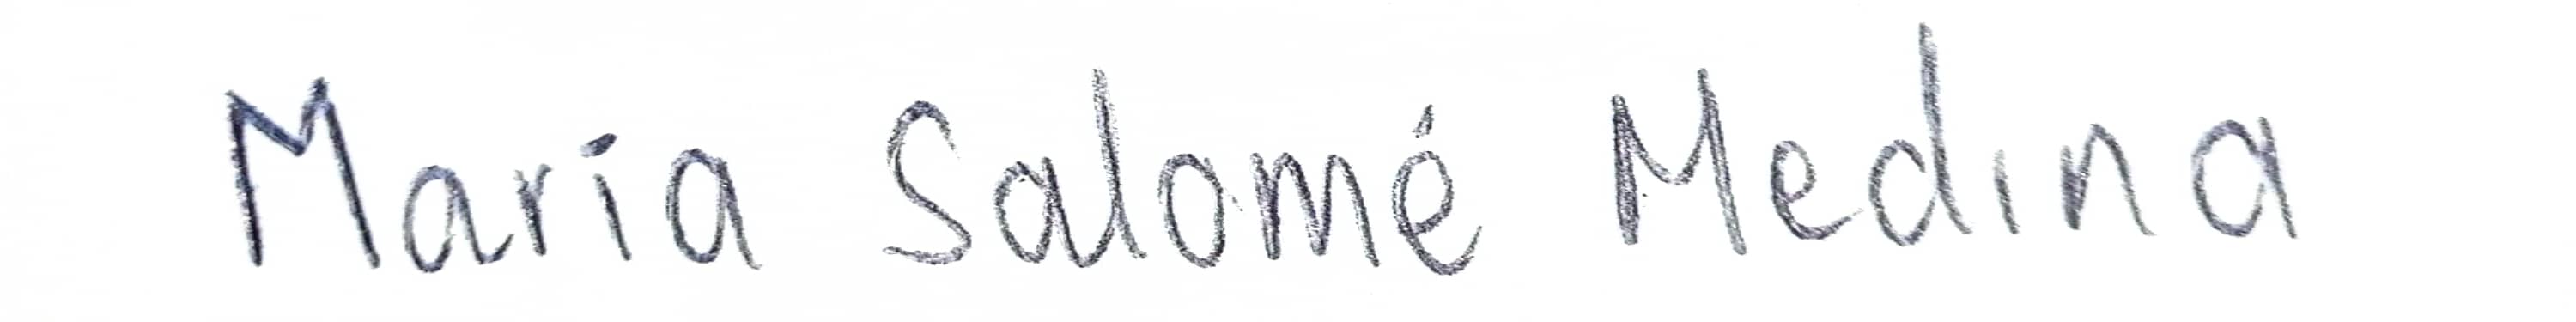 María Salomé Medina